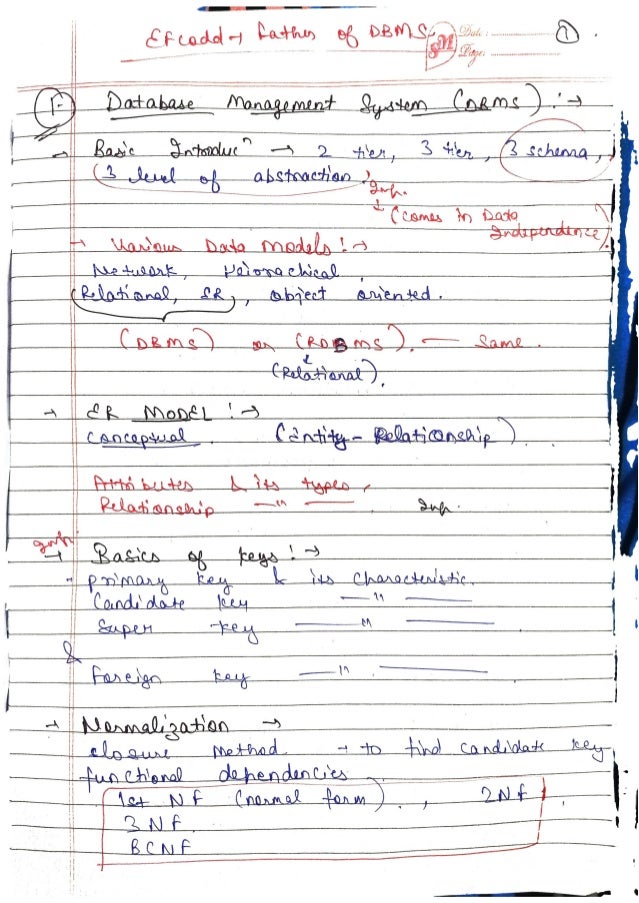 EFcodd → father of DBMS. SM Date : Page. ①
F Database Management System (DBMS) : →
→ Basic Introducn → 2 tier, 3 tier, 3 schema,
(3 level of abstraction) Imp.
↓ (comes in Data
Independence).
→ Various Data models : →
Network, Heirarachical
(Relational, ER), object oriented.
(DBMS) or (RDBMS). — Same.
↓
(Relational).
→ ER MODEL : →
conceptual (Entity - Relationship)
Attributes & its types,
Relationship —"— . Imp.
Imp.
→ Basics of keys : →
- primary key & its characteristic.
Candidate key —"—
Super key —"—
&
foreign key —"—
→ Normalization →
closure method → to find candidate key
functional dependencies
1st NF (normal form) , 2NF,
3NF
BCNF